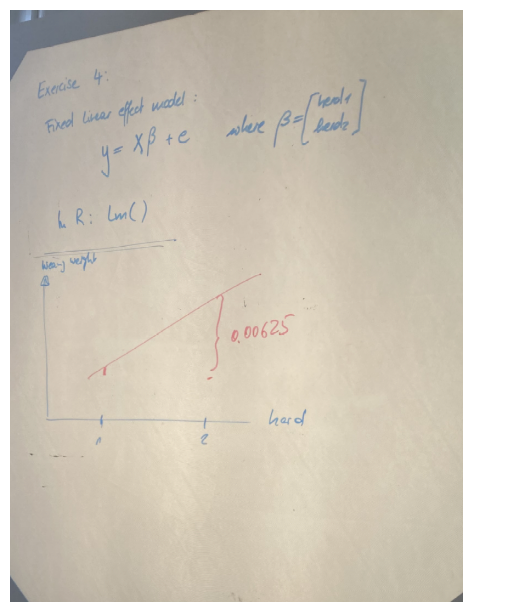 Exercise 4:
Fixed linear effect model:
y = Xβ + e where β = [herd1
herd2]
In R: lm()
weight
0.00625
herd
1 2